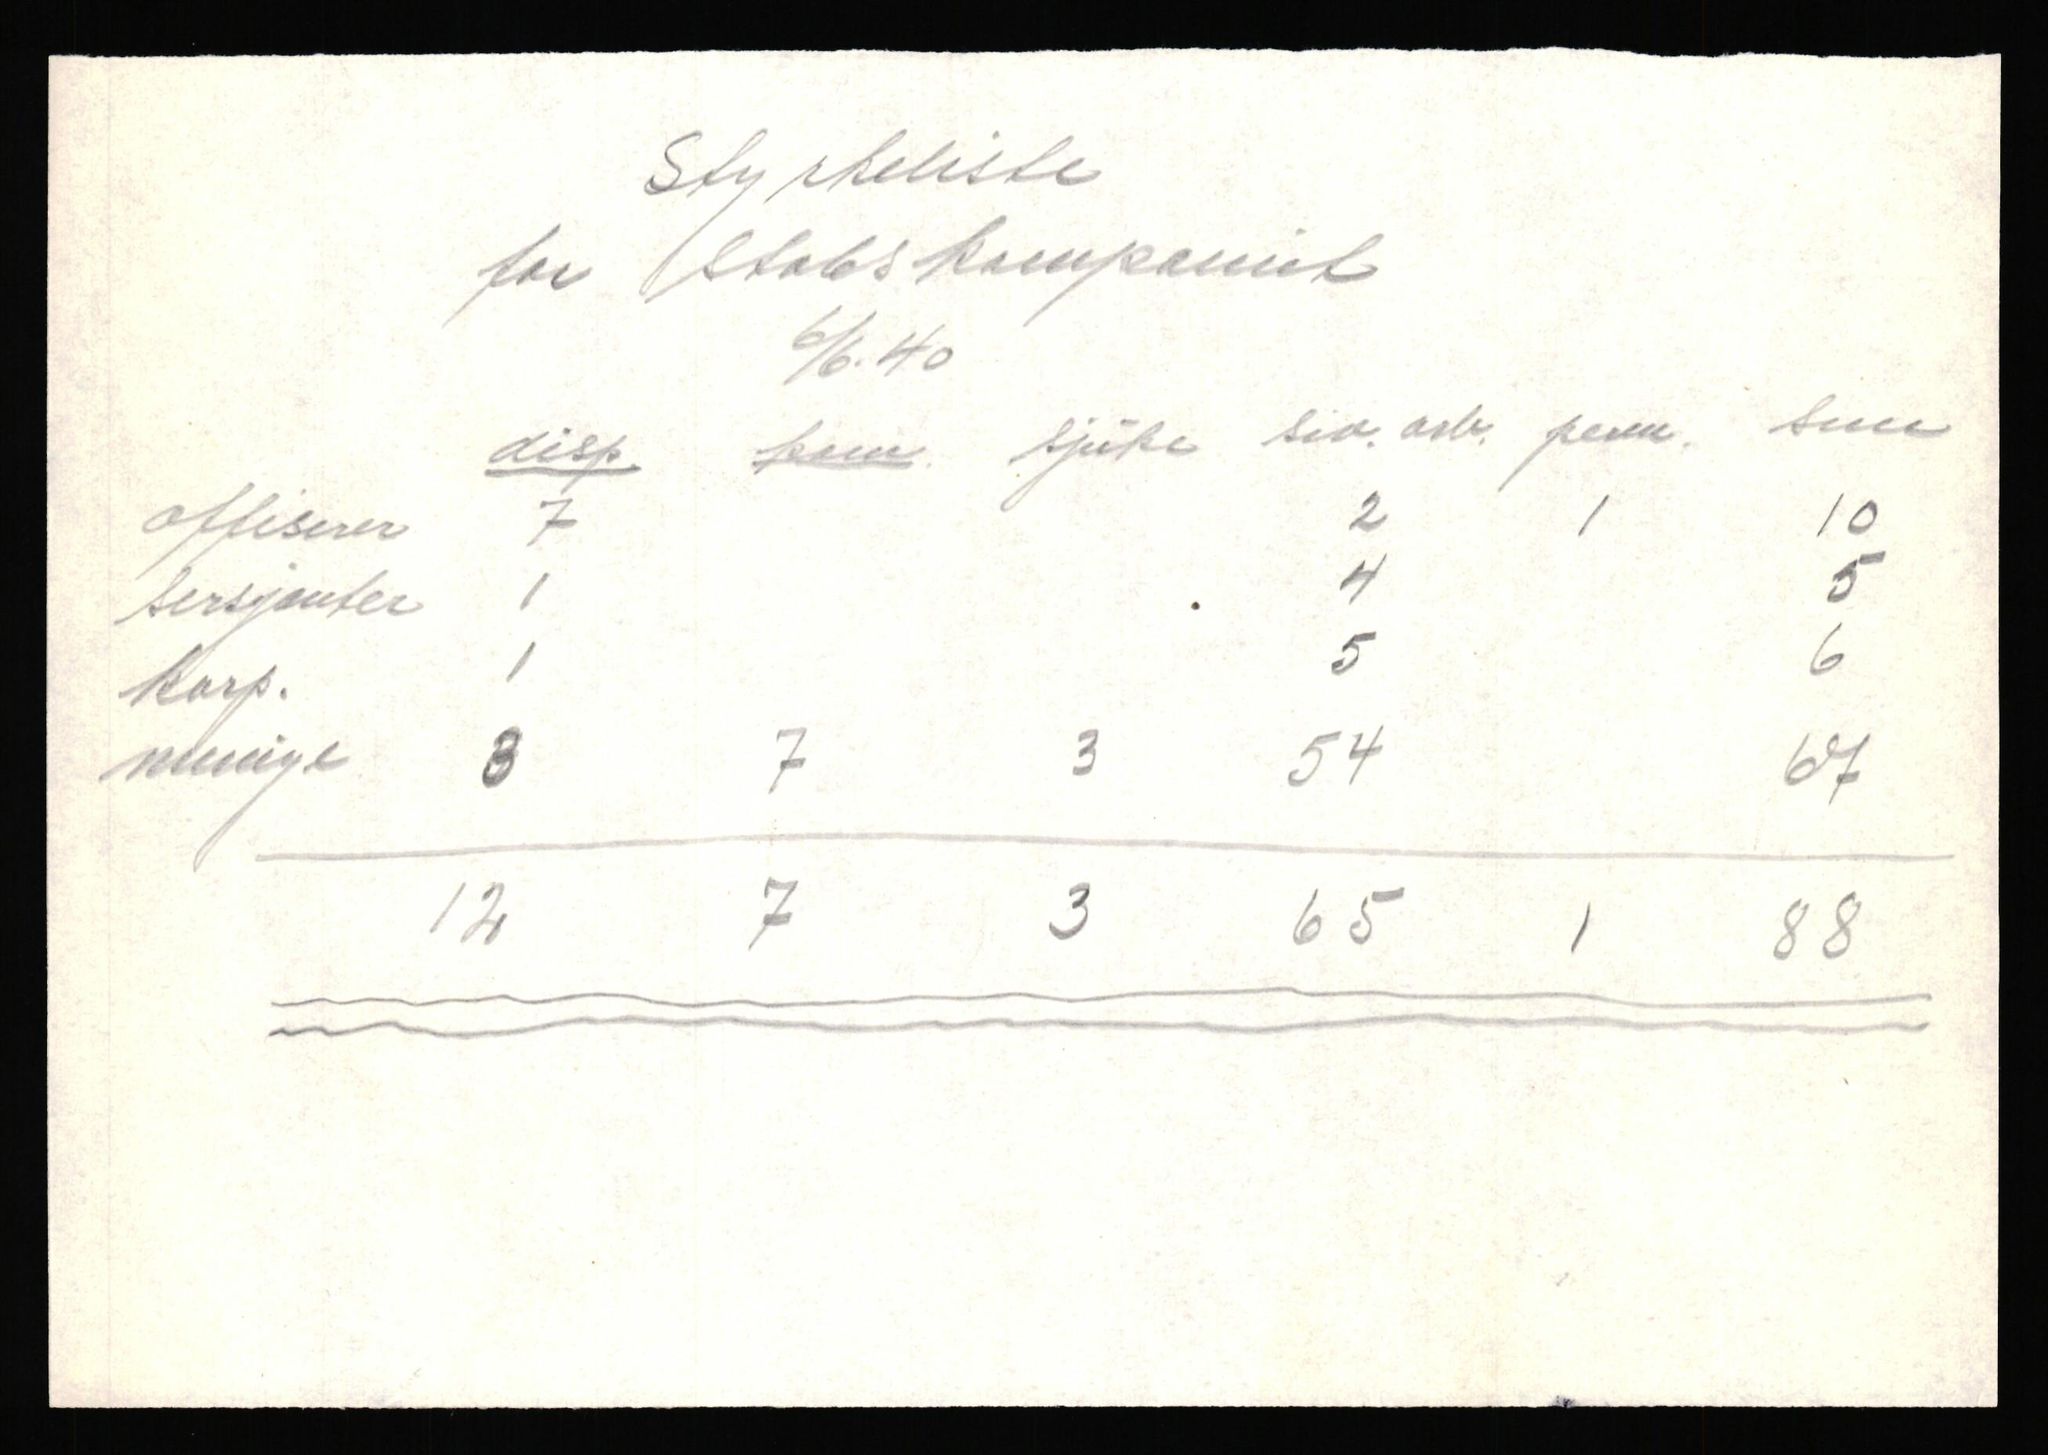 Styrkeliste
for Stabskompaniet
6/6.40
disp. kom. sjuke siv. arb. perm. sum
offiserer 7 2 1 10
sersjanter 1 4 5
korp. 1 5 6
menige 3 7 3 54 67
12 7 3 65 1 88